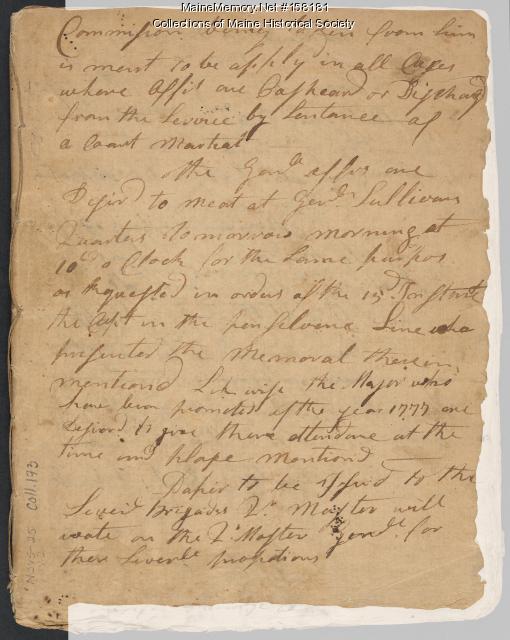 MaineMemory.Net #158181
Collections of Maine Historical Society
Commission being taken from him
is ment to be apply in all Cases
where Offis are Casheard or Dischad
from the Service by Sentance of
a Court Martial
the Genl offers are
Desird to meat at Genl Sullivans
Quarters to morrow morning at
10 o Clock for the Same purpos
as Requested in orders of the 15 Instant
the Capt in the pensilvena Line who
presented the Memoral therein
mentiond Lik wise the Major who
have been promoted of the year 1777 are
Desierd to give there attendance at the
time and plape mentiond
Paper to be Issued to the
Brigades Qr Master will
wate on the Qr Master Genl for
there Severl propotions
Coll. 193